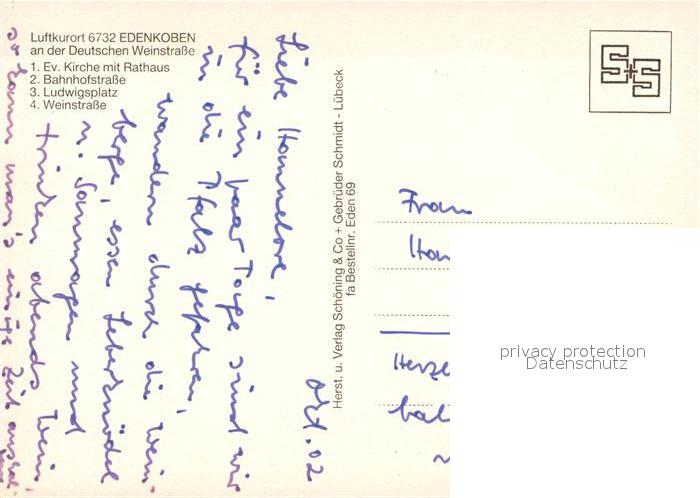 Luftkurort 6732 EDENKOBEN
an der Deutschen Weinstraße
1. Ev. Kirche mit Rathaus
2. Bahnhofstraße
3. Ludwigsplatz
4. Weinstraße
Okt. 02
Liebe Hannelore,
für ein paar Tage sind wir
in die Pfalz gefahren,
wandern durch die Wein-
berge, essen Leberknödel
u. Saumagen und
trinken abends Wein
da kann man's einige Zeit
Herst. u. Verlag Schöning & Co + Gebrüder Schmidt - Lübeck
fa Bestellnr. Eden 69
S+S
Frau
Han
privacy protection
Datenschutz